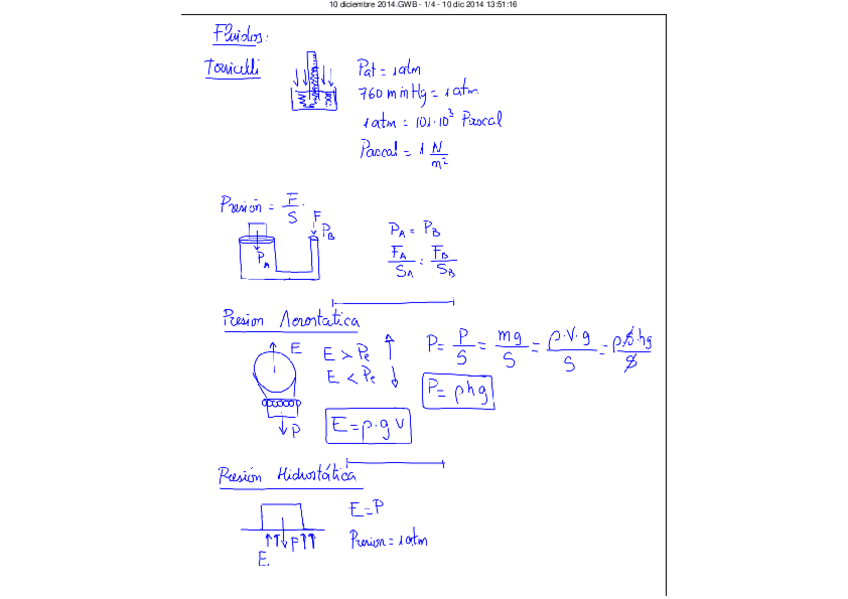 10 diciembre 2014.GWB - 1/4 - 10 dic 2014 13:51:16
Fluidos:
Torricelli
Pat = 1 atm
760 mm Hg = 1 atm
1 atm = 101·10³ Pascal
Pascal = 1 N/m²
Presión = F/S.
F
P_B
P_A
P_A = P_B
F_A/S_A = F_B/S_B
Presion Aerostatica
E
E > Pe ↑
E < Pe ↓
P
E = ρ·g V
P = P/S = mg/S = ρ·V·g/S = ρ·S·hg/S
P = ρhg
Presión Hidrostática
E = P
Presion = 1 atm
P
E